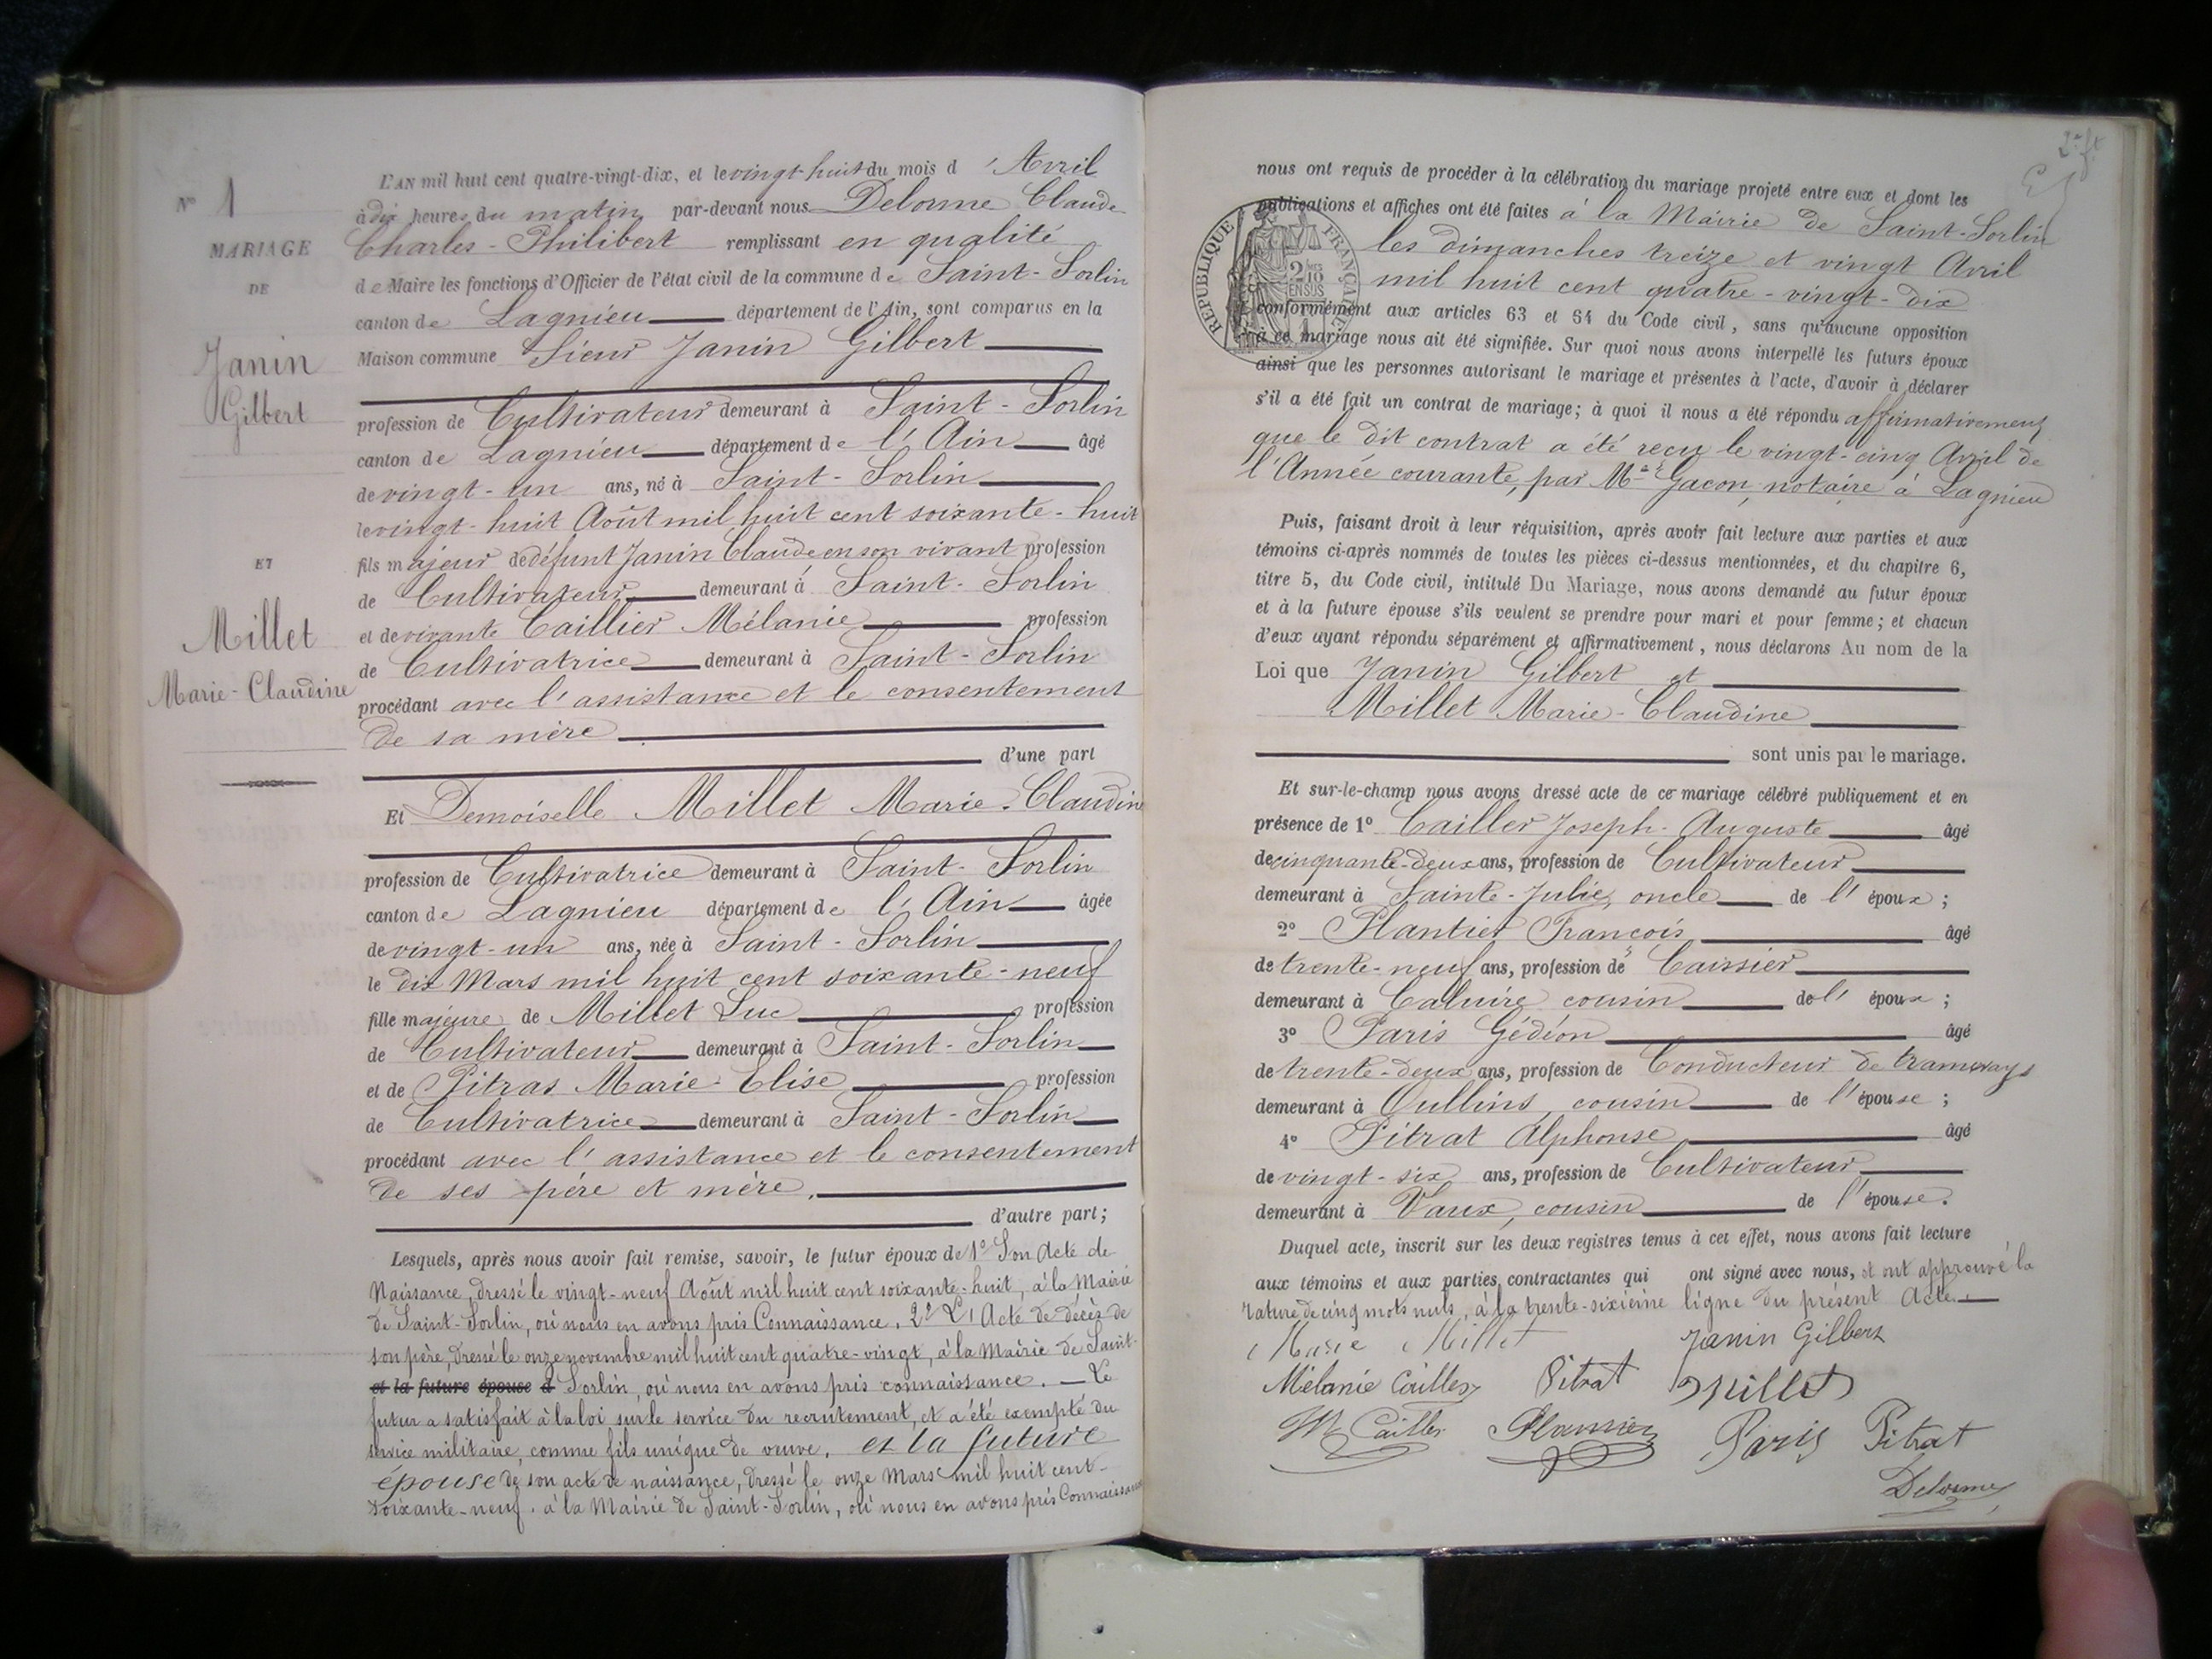 L'AN mil huit cent quatre-vingt-dix, et le vingt-huit du mois d'Avril
N° 1
à dix heures du matin par-devant nous Delorme Claude
MARIAGE
Charles-Philibert remplissant en qualité
DE
de Maire les fonctions d'Officier de l'état civil de la commune de Saint-Sorlin
canton de Lagnieu département de l'Ain, sont comparus en la
Janin
Maison commune Sieur Janin Gilbert
Gilbert
profession de Cultivateur demeurant à Saint-Sorlin
canton de Lagnieu département de l'Ain âgé
de vingt-un ans, né à Saint-Sorlin
le vingt-huit Août mil huit cent soixante-huit
ET
fils majeur de défunt Janin Claude en son vivant profession
de Cultivateur demeurant à Saint-Sorlin
Millet
et de vivante Caillier Mélanie profession
de Cultivatrice demeurant à Saint-Sorlin
Marie-Claudine
procédant avec l'assistance et le consentement
de sa mère
d'une part
Et Demoiselle Millet Marie-Claudine
profession de Cultivatrice demeurant à Saint-Sorlin
canton de Lagnieu département de l'Ain âgée
de vingt-un ans, née à Saint-Sorlin
le dix Mars mil huit cent soixante-neuf
fille majeure de Millet Luc profession
de Cultivateur demeurant à Saint-Sorlin
et de Pitras Marie-Elise profession
de Cultivatrice demeurant à Saint-Sorlin
procédant avec l'assistance et le consentement
de ses père et mère.
d'autre part;
Lesquels, après nous avoir fait remise, savoir, le futur époux de 1° Son Acte de
Naissance, dressé le vingt-neuf Août mil huit cent soixante-huit, à la Mairie
de Saint-Sorlin, où nous en avons pris Connaissance. 2° L'Acte de décès de
son père, dressé le onze novembre mil huit cent quatre-vingt, à la Mairie de Saint-
et la future épouse d Sorlin, où nous en avons pris connaissance. — Le
futur a satisfait à la loi sur le service du recrutement, et a été exempté du
service militaire, comme fils unique de veuve. et la future
épouse de son acte de naissance, dressé le onze Mars mil huit cent-
soixante-neuf. à la Mairie de Saint-Sorlin, où nous en avons pris Connaissance
2e ft
nous ont requis de procéder à la célébration du mariage projeté entre eux et dont les
publications et affiches ont été faites à la Mairie de Saint-Sorlin
les dimanches treize et vingt Avril
mil huit cent quatre-vingt-dix
RÉPUBLIQUE FRANÇAISE
2 10 EN SUS
conformément aux articles 63 et 64 du Code civil, sans qu'aucune opposition
à ce mariage nous ait été signifiée. Sur quoi nous avons interpellé les futurs époux
ainsi que les personnes autorisant le mariage et présentes à l'acte, d'avoir à déclarer
s'il a été fait un contrat de mariage; à quoi il nous a été répondu affirmativement
que le dit contrat a été reçu le vingt-cinq Avril de
l'Année courante, par Me Gacon, notaire à Lagnieu
Puis, faisant droit à leur réquisition, après avoir fait lecture aux parties et aux
témoins ci-après nommés de toutes les pièces ci-dessus mentionnées, et du chapitre 6,
titre 5, du Code civil, intitulé Du Mariage, nous avons demandé au futur époux
et à la future épouse s'ils veulent se prendre pour mari et pour femme; et chacun
d'eux ayant répondu séparément et affirmativement, nous déclarons Au nom de la
Loi que Janin Gilbert et
Millet Marie-Claudine
sont unis par le mariage.
Et sur-le-champ nous avons dressé acte de ce mariage célébré publiquement et en
présence de 1° Cailler Joseph-Auguste âgé
de cinquante-deux ans, profession de Cultivateur
demeurant à Sainte-Julie, oncle de l'époux;
2° Plantier François âgé
de trente-neuf ans, profession de Caissier
demeurant à Caluire cousin de l'époux;
3° Paris Gédéon âgé
de trente-deux ans, profession de Conducteur de tramways
demeurant à Oullins, cousin de l'épouse;
4° Pitrat Alphonse âgé
de vingt-six ans, profession de Cultivateur
demeurant à Vaux, cousin de l'épouse.
Duquel acte, inscrit sur les deux registres tenus à cet effet, nous avons fait lecture
aux témoins et aux parties contractantes qui ont signé avec nous, et ont approuvé la
rature de cinq mots nuls, à la trente-sixième ligne du présent Acte.
Marie Millet Janin Gilbert
Mélanie Cailler Pitrat Millet
Cailler Plantier Paris Pitrat
Delorme